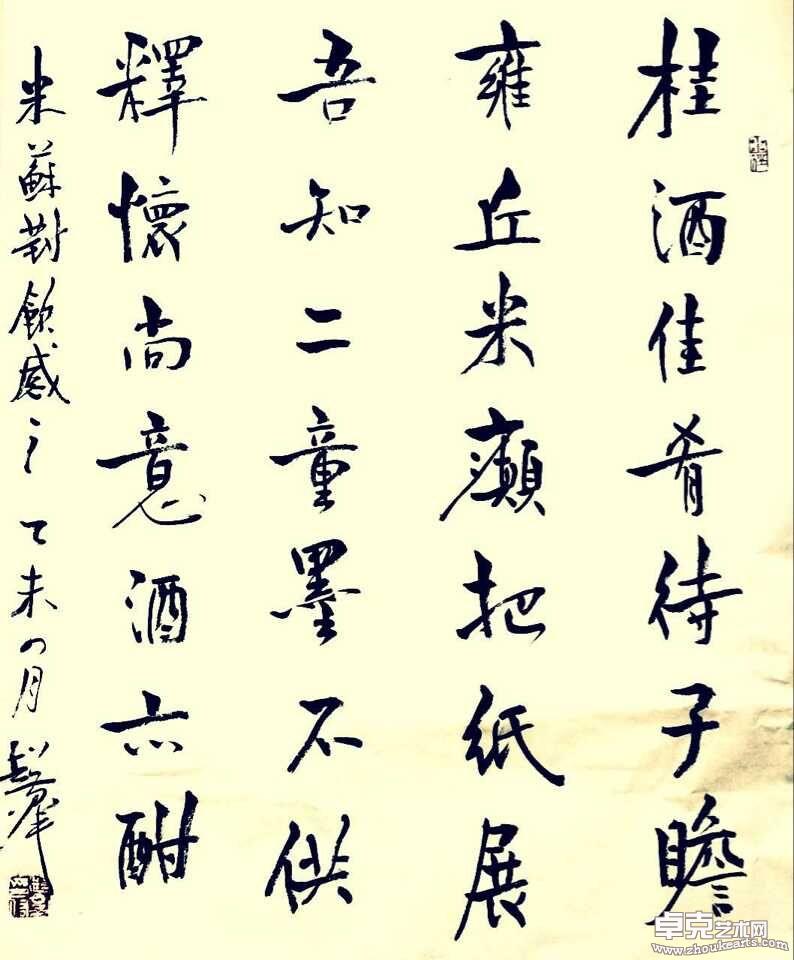 桂酒佳肴待子瞻
雍丘米癫把纸展
吾知二童墨不供
釋懷尚意酒亦酣
米蘇對飲感之乙未四月
卓克艺术网
www.zhoukearts.com